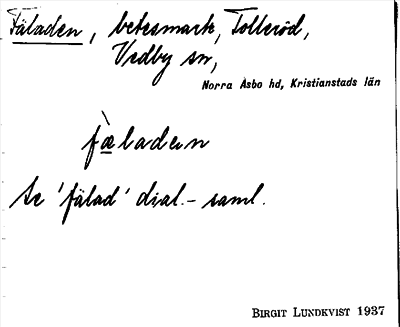 Fäladen, betesmark, Tolleröd,
Vedby sn,
Norra Åsbo hd, Kristianstads län
fæ̀ladən
Se 'fälad' dial.- saml.
BIRGIT LUNDKVIST 1937